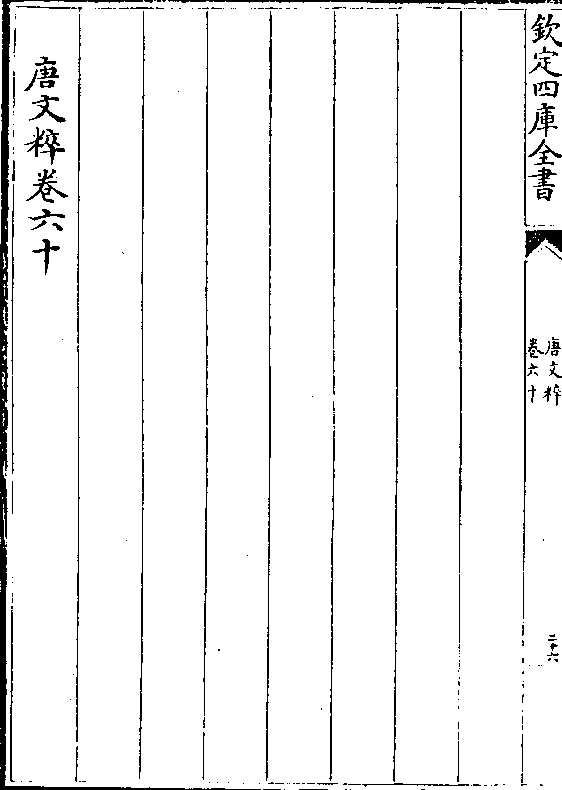 欽定四庫全書
唐文粹
卷六十
二十六
唐文粹卷六十